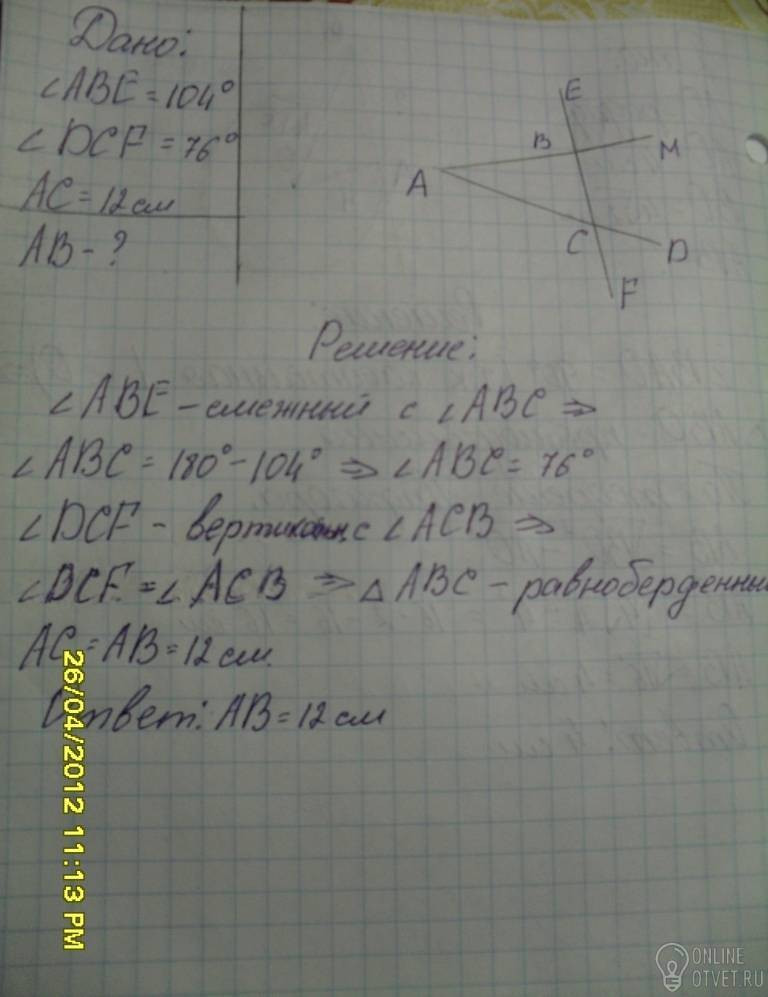 Дано:
∠ABE = 104°
∠DCF = 76°
AC = 12 см
AB - ?
E
B
M
A
C
D
F
Решение:
∠ABE - смежный с ∠ABC ⇒
∠ABC = 180° - 104° ⇒ ∠ABC = 76°
∠DCF - вертикальн. с ∠ACB ⇒
∠BCF = ∠ACB ⇒ △ABC - равноберденный
AC = AB = 12 см.
Ответ: AB = 12 см
26/04/2012 11:13 PM
ONLINE
OTVET.RU